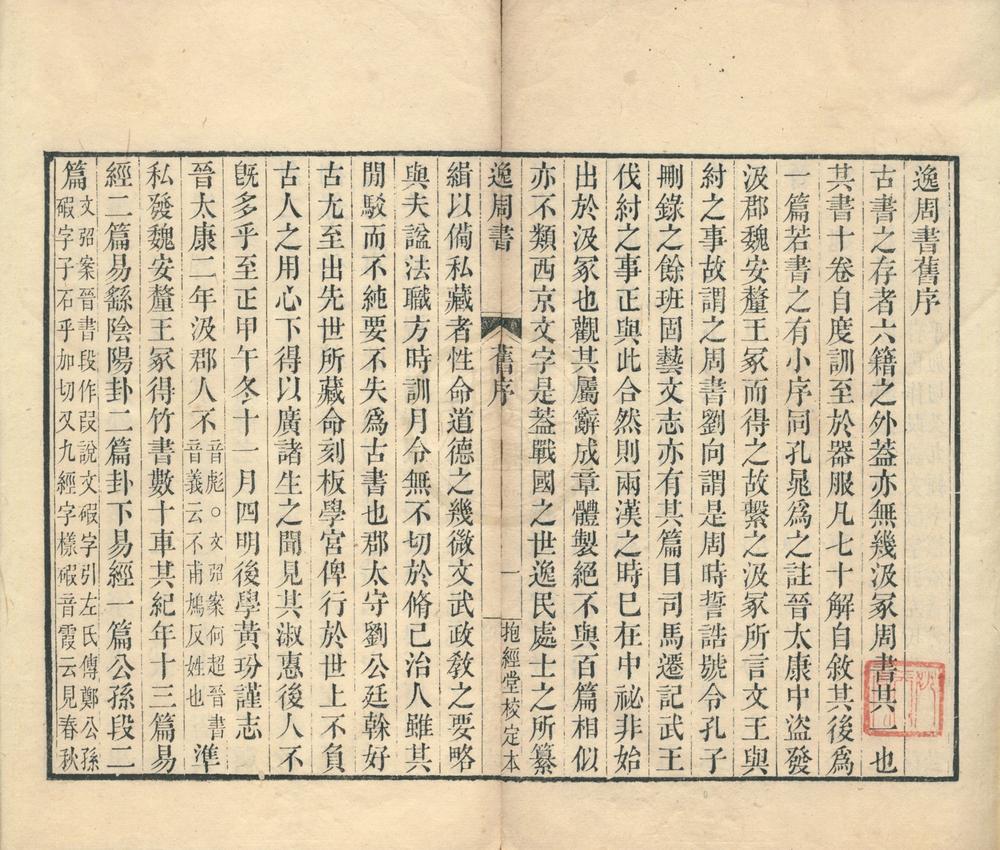 逸周書舊序
古書之存者六籍之外葢亦無幾汲冢周書其一也
其書十卷自度訓至於器服凡七十解自敘其後爲
一篇若書之有小序同孔晁爲之註晉太康中盜發
汲郡魏安釐王冢而得之故繫之汲冢所言文王與
紂之事故謂之周書劉向謂是周時誓誥號令孔子
刪錄之餘班固藝文志亦有其篇目司馬遷記武王
伐紂之事正與此合然則兩漢之時巳在中祕非始
出於汲冢也觀其屬辭成章體製絕不與百篇相似
亦不類西京文字是葢戰國之世逸民處士之所纂
逸周書 舊序 一 抱經堂校定本
緝以僃私藏者性命道德之幾微文武政敎之要略
與夫諡法職方時訓月令無不切於脩己治人雖其
閒駁而不純要不失爲古書也郡太守劉公廷榦好
古尤至出先世所藏命刻板學宮俾行於世上不負
古人之用心下得以廣諸生之聞見其淑惠後人不
旣多乎至正甲午冬十一月四明後學黃玢謹志
晉太康二年汲郡人不音彪○文弨案何超晉書音義云不甫鳩反姓也準
私發魏安釐王冢得竹書數十車其紀年十三篇易
經二篇易繇陰陽卦二篇卦下易經一篇公孫段二
篇文弨案晉書段作叚說文碬字引左氏傳鄭公孫碬字子石乎加切又九經字樣碬音霞云見春秋